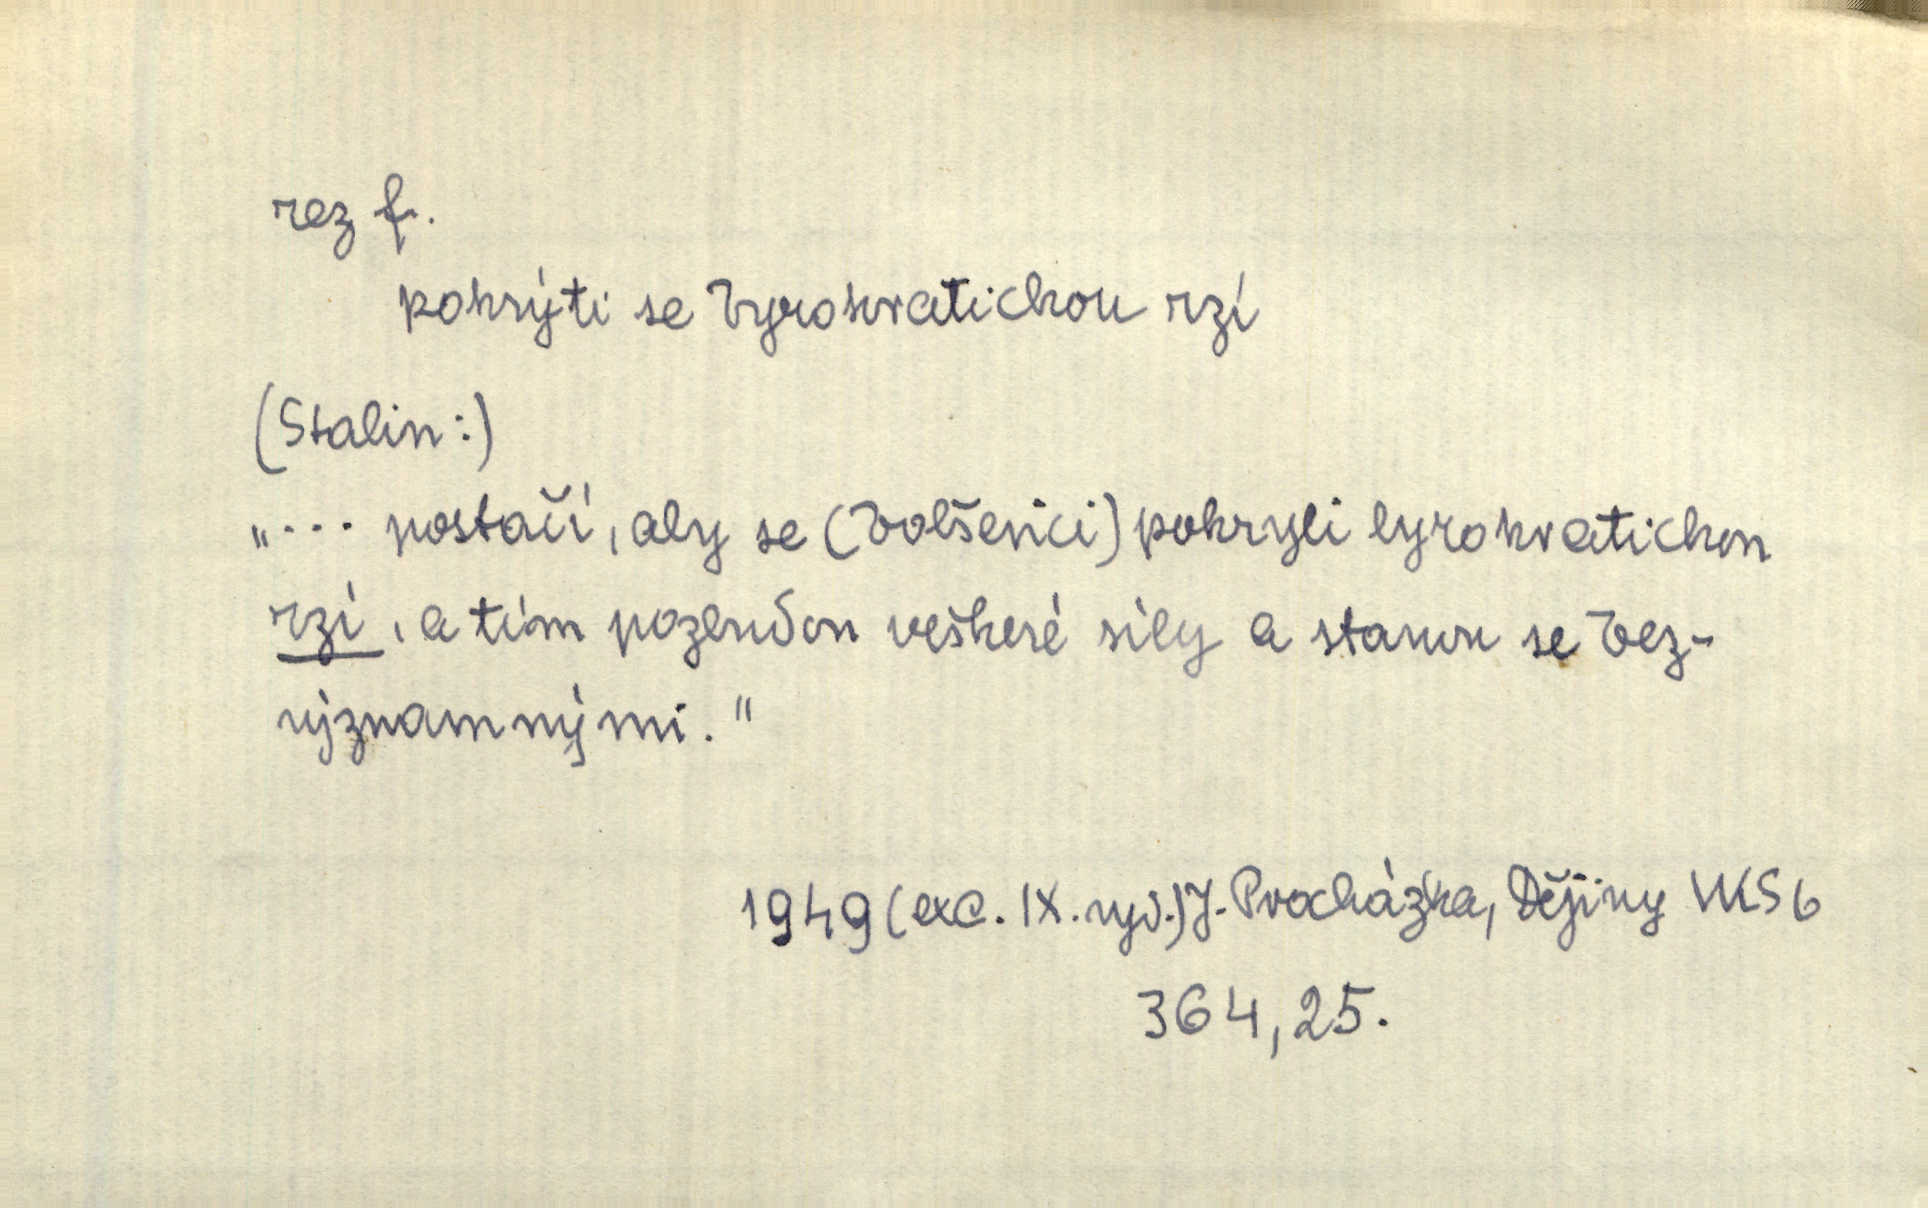 rez f.
pokrýti se byrokratickou rzí
(Stalin:)
„... postačí, aby se (bolševici) pokryli byrokratickou
rzí, a tím pozbudou veškeré síly a stanou se bez-
významnými."
1949 (exc. IX. vyd.) J. Procházka, Dějiny VKSb
364,25.